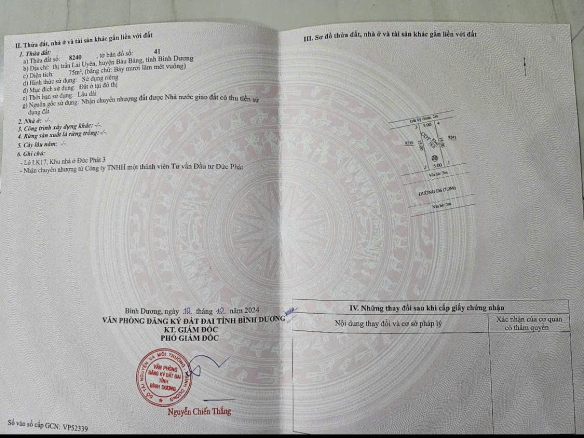 II. Thửa đất, nhà ở và tài sản khác gắn liền với đất
1. Thửa đất:
a) Thửa đất số: 8240 tờ bản đồ số: 41
b) Địa chỉ: thị trấn Lai Uyên, huyện Bàu Bàng, tỉnh Bình Dương
c) Diện tích: 75m², (bằng chữ: Bảy mươi lăm mét vuông)
d) Hình thức sử dụng: Sử dụng riêng
đ) Mục đích sử dụng: Đất ở tại đô thị
e) Thời hạn sử dụng: Lâu dài
g) Nguồn gốc sử dụng: Nhận chuyển nhượng đất được Nhà nước giao đất có thu tiền sử
dụng đất
2. Nhà ở: -/-
3. Công trình xây dựng khác: -/-
4. Rừng sản xuất là rừng trồng: -/-
5. Cây lâu năm: -/-
6. Ghi chú:
- Lô LK17, Khu nhà ở Đức Phát 3
- Nhận chuyển nhượng từ Công ty TNHH một thành viên Tư vấn Đầu tư Đức Phát
Bình Dương, ngày 10 tháng 12 năm 2024
VĂN PHÒNG ĐĂNG KÝ ĐẤT ĐAI TỈNH BÌNH DƯƠNG
KT. GIÁM ĐỐC
PHÓ GIÁM ĐỐC
VĂN PHÒNG
ĐĂNG KÝ ĐẤT ĐAI
TỈNH
BÌNH DƯƠNG
Nguyễn Chiến Thắng
Số vào sổ cấp GCN: VP52339
III. Sơ đồ thửa đất, nhà ở và tài sản khác gắn liền với đất
5.00
8241
5.00
IV. Những thay đổi sau khi cấp giấy chứng nhận
Nội dung thay đổi và cơ sở pháp lý
Xác nhận của cơ quan
có thẩm quyền